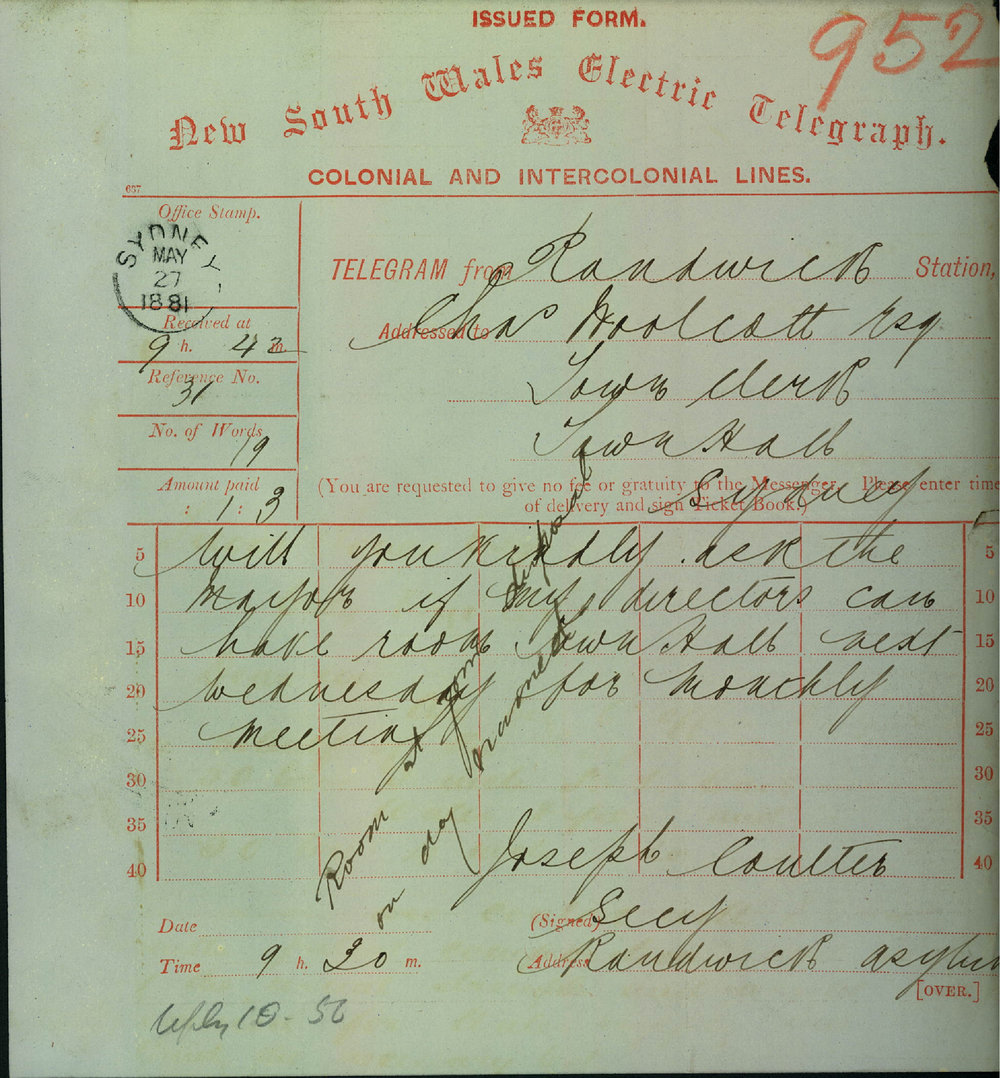 ISSUED FORM.
952
New South Wales Electric Telegraph.
COLONIAL AND INTERCOLONIAL LINES.
657
Office Stamp.
SYDNEY
MAY
27
1881
TELEGRAM from Randwick Station,
Received at
9 h. 42 m.
Addressed to Chas Woolcott Esq
Reference No.
31
Town Clerk
No. of Words
19
Town Hall
Amount paid
: 1 : 3
Sydney
(You are requested to give no fee or gratuity to the Messenger. Please enter time
of delivery and sign Ticket Book.)
5 Will you kindly ask the 5
10 Mayor if my directors can 10
15 have room Town Hall next 15
20 Wednesday for monthly 20
25 meeting 25
30 30
35 35
40 40
Joseph Coulter
Room at your disposal
on day named
Date
(Signed) Secy
Time 9 h. 30 m.
(Address) Randwick asylum
[OVER.]
10-56